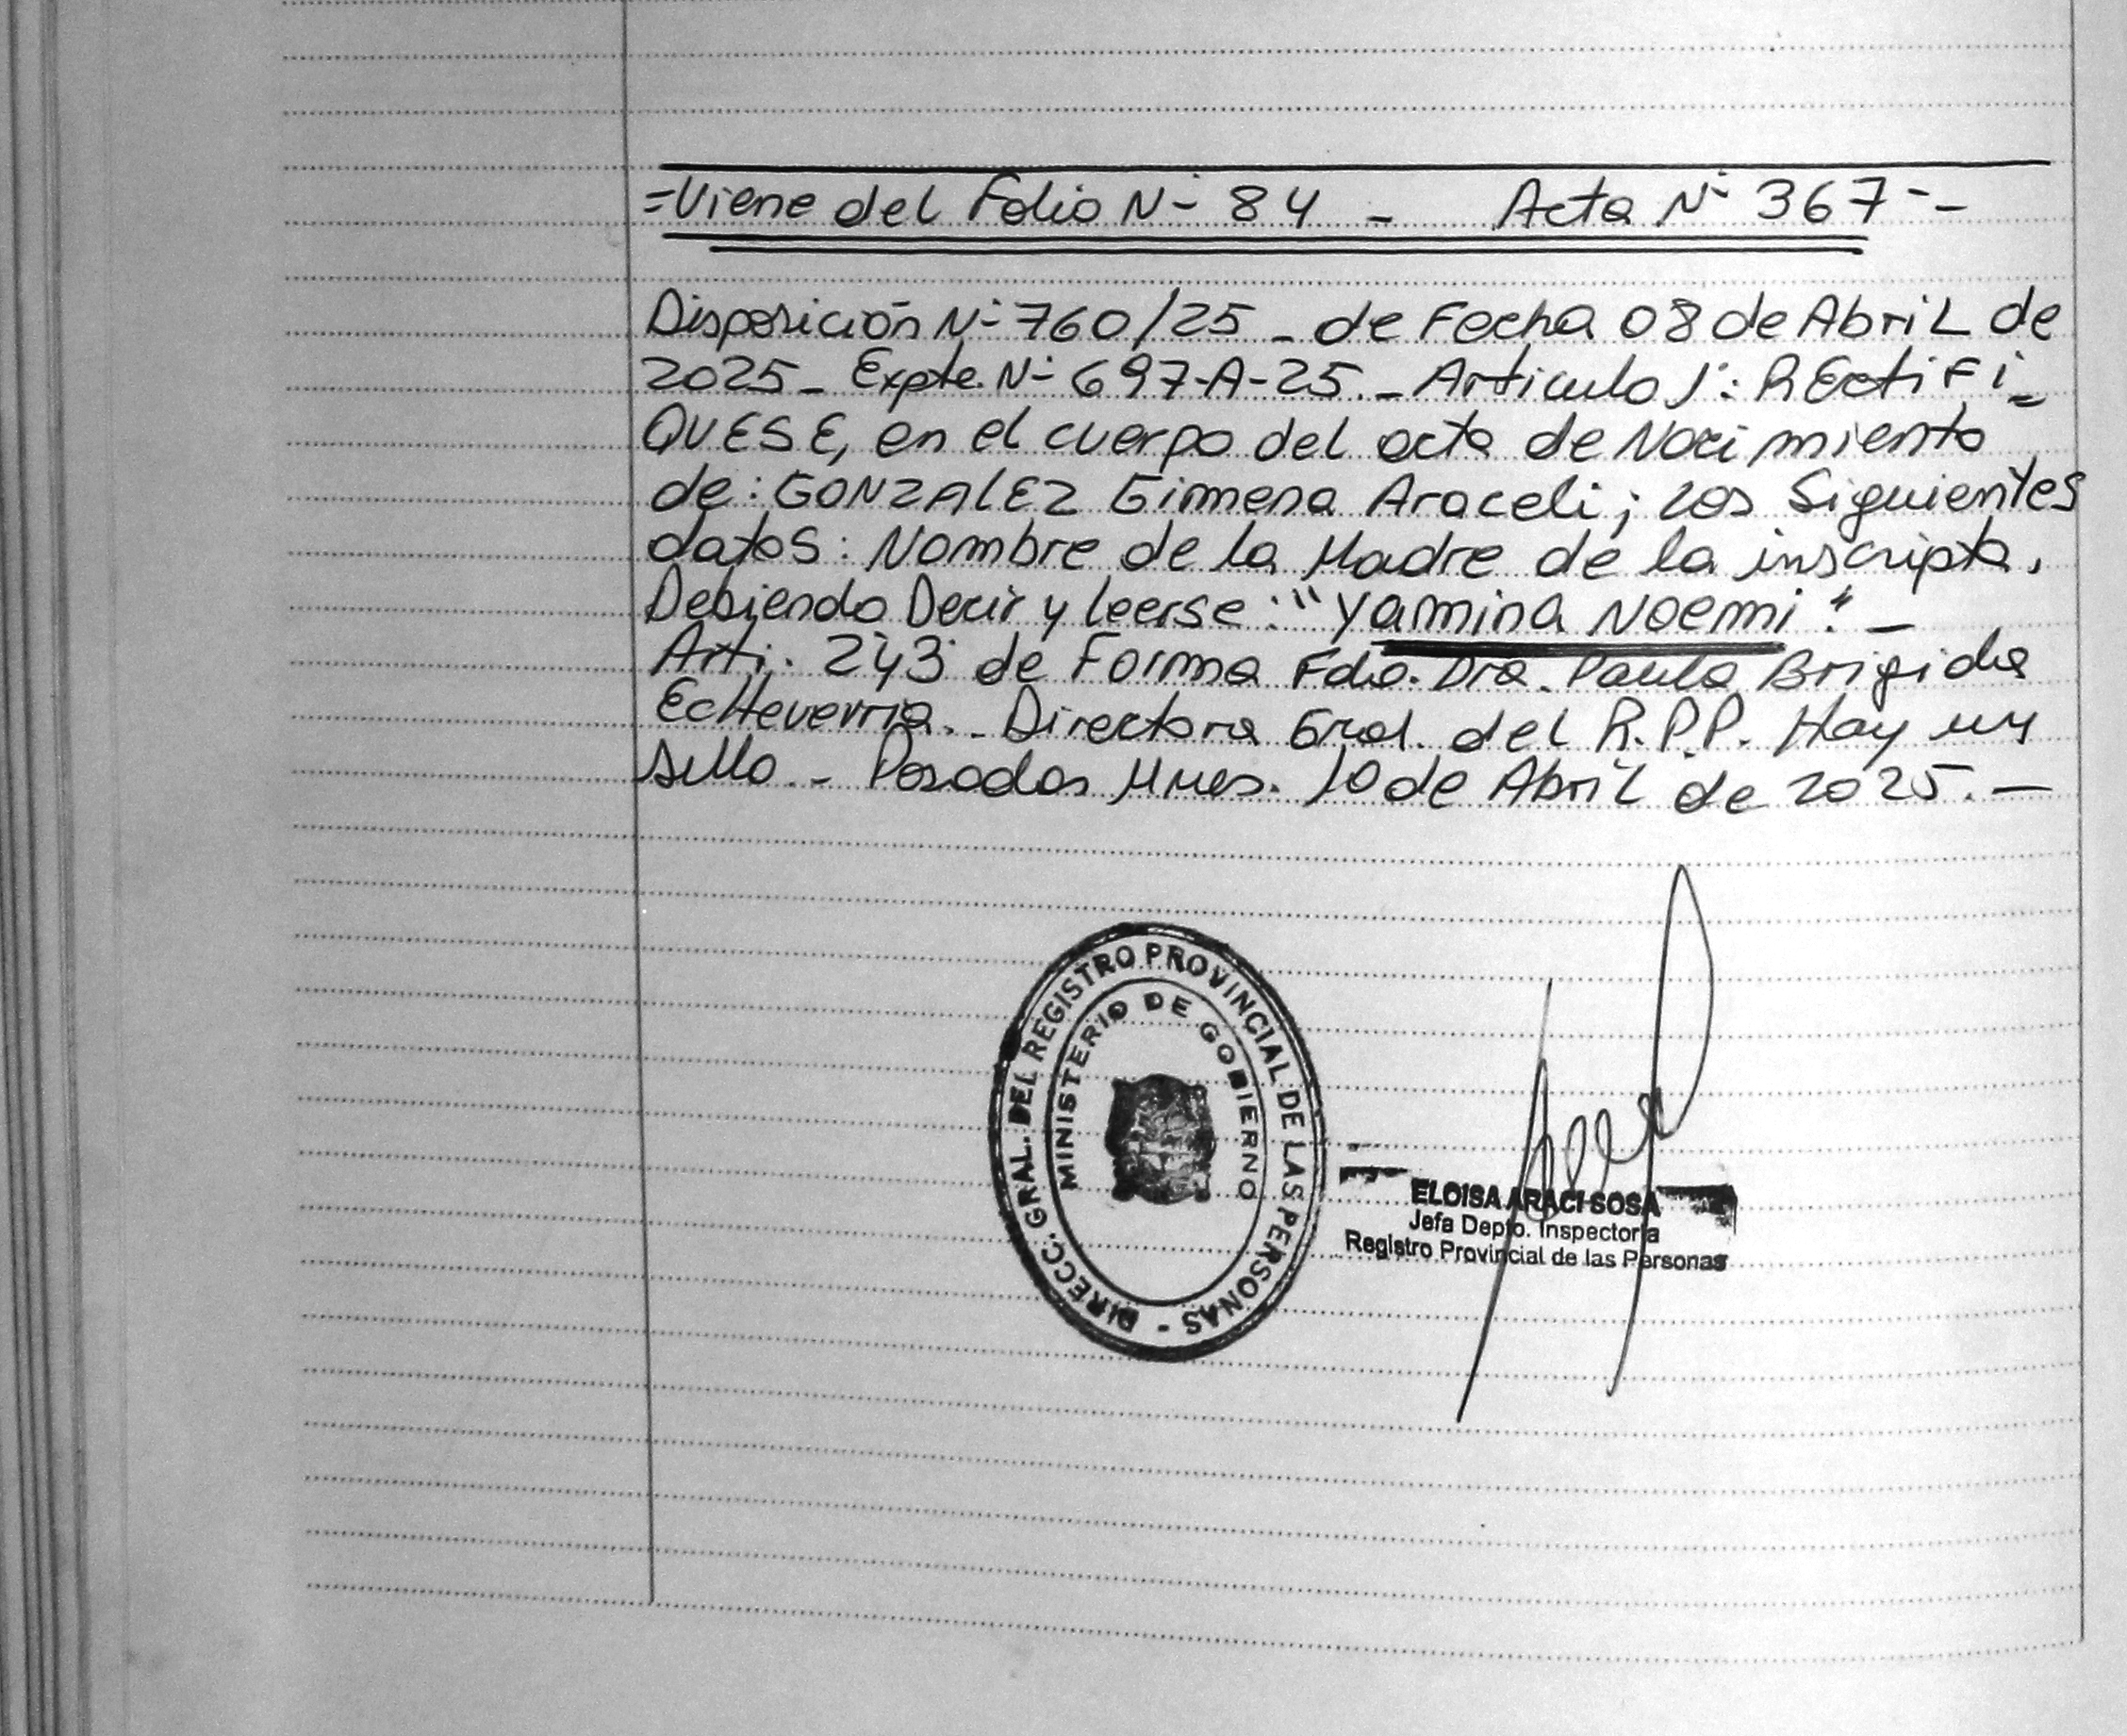 =Viene del Folio N- 84 - Acta N- 367--
Disposición N- 760/25 - de Fecha 08 de Abril de
2025 - Expte. N- 697-A-25. - Articulo 1°: REctiFi=
QUESE, en el cuerpo del acta de Nacimiento
de: GONZALEZ Gimena Araceli; los Siguientes
datos: Nombre de la Madre de la inscripta.
Debiendo Decir y leerse: "Yamina Noemi". -
Arti. 2y3 de Forma Fdo. Dra. Paula Brigida
Echeverria. - Directora Gral. del R.P.P. Hay un
sello - Posadas Mnes. 10 de Abril de 2025. -
DIRECC. GRAL. DEL REGISTRO PROVINCIAL DE LAS PERSONAS -
MINISTERIO DE GOBIERNO
ELOISA ARACI SOSA
Jefa Depto. Inspectoria
Registro Provincial de las Personas